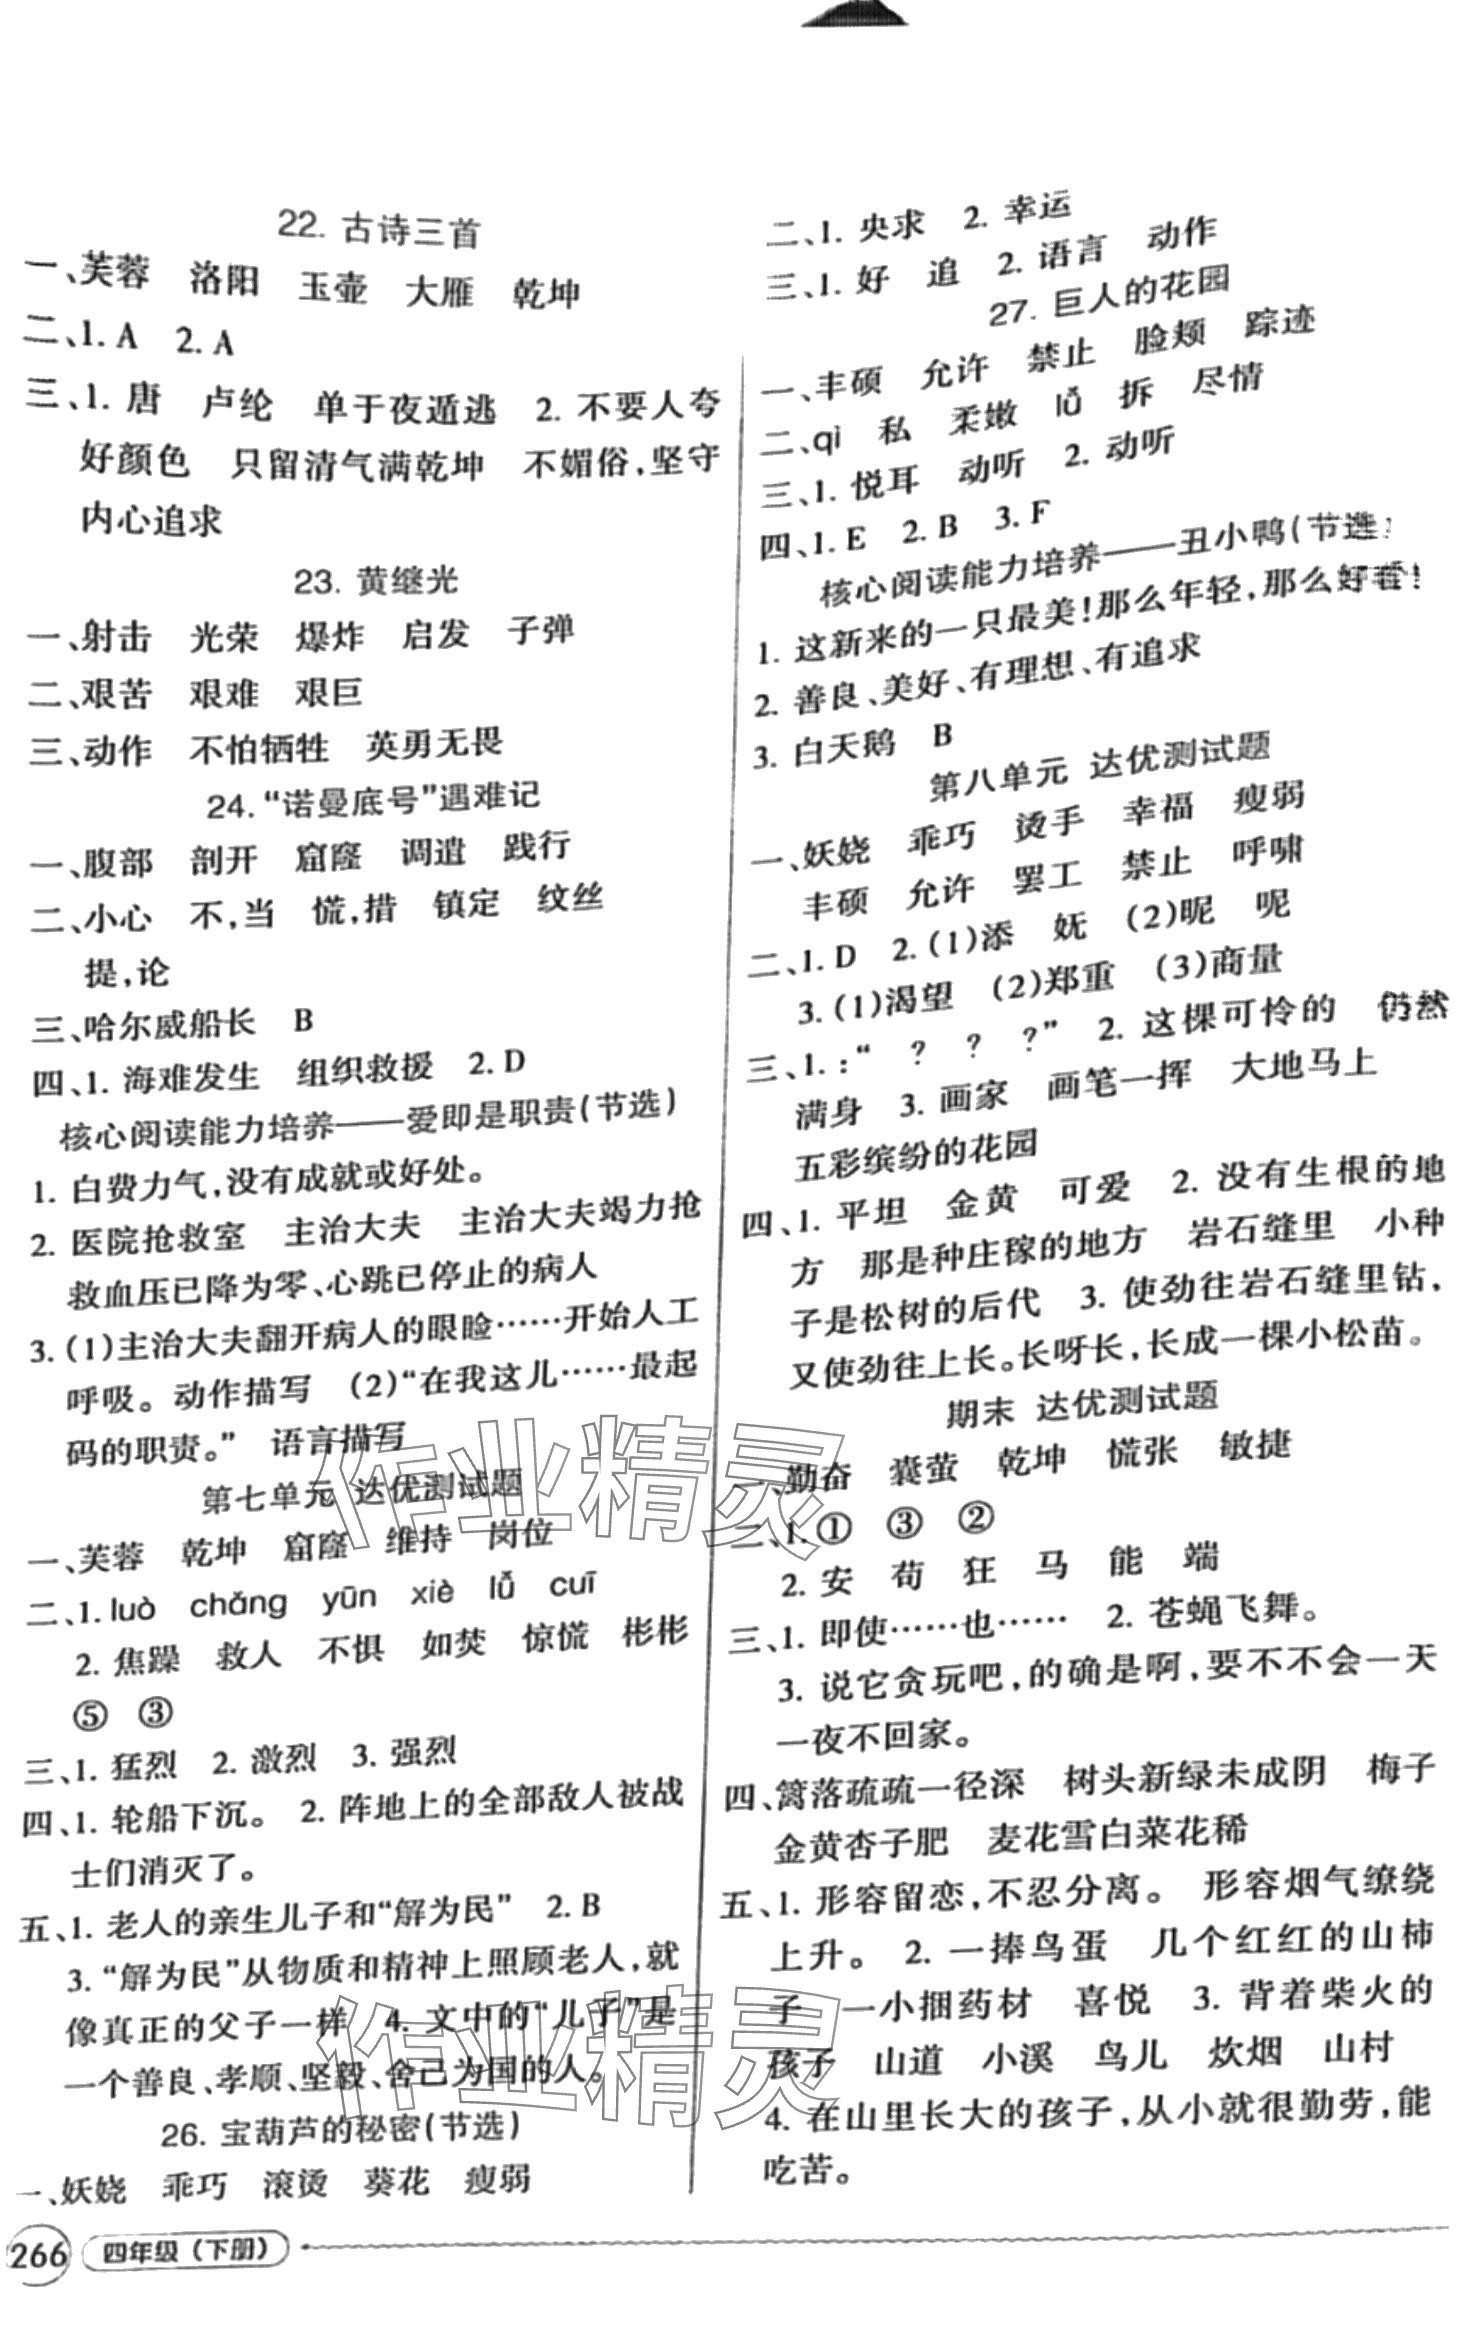 22. 古诗三首
一、芙蓉 洛阳 玉壶 大雁 乾坤
二、1. A 2. A
三、1. 唐 卢纶 单于夜遁逃 2. 不要人夸
好颜色 只留清气满乾坤 不媚俗,坚守
内心追求
23. 黄继光
一、射击 光荣 爆炸 启发 子弹
二、艰苦 艰难 艰巨
三、动作 不怕牺牲 英勇无畏
24. “诺曼底号”遇难记
一、腹部 剖开 窟窿 调遣 践行
二、小心 不,当 慌,措 镇定 纹丝
提,论
三、哈尔威船长 B
四、1. 海难发生 组织救援 2. D
核心阅读能力培养——爱即是职责(节选)
1. 白费力气,没有成就或好处。
2. 医院抢救室 主治大夫 主治大夫竭力抢
救血压已降为零、心跳已停止的病人
3. (1)主治大夫翻开病人的眼睑……开始人工
呼吸。动作描写 (2)“在我这儿……最起
码的职责。” 语言描写
第七单元 达优测试题
一、芙蓉 乾坤 窟窿 维持 岗位
二、1. luò chǎng yūn xiè lǚ cuī
2. 焦躁 救人 不惧 如焚 惊慌 彬彬
⑤ ③
三、1. 猛烈 2. 激烈 3. 强烈
四、1. 轮船下沉。 2. 阵地上的全部敌人被战
士们消灭了。
五、1. 老人的亲生儿子和“解为民” 2. B
3. “解为民”从物质和精神上照顾老人,就
像真正的父子一样 4. 文中的“儿子”是
一个善良、孝顺、坚毅、舍己为国的人。
26. 宝葫芦的秘密(节选)
一、妖娆 乖巧 滚烫 葵花 瘦弱
266 四年级(下册)
二、1. 央求 2. 幸运
三、1. 好 追 2. 语言 动作
27. 巨人的花园
一、丰硕 允许 禁止 脸颊 踪迹
二、qì 私 柔嫩 lǚ 拆 尽情
三、1. 悦耳 动听 2. 动听
四、1. E 2. B 3. F
核心阅读能力培养——丑小鸭(节选)
1. 这新来的一只最美!那么年轻,那么好看!
2. 善良、美好、有理想、有追求
3. 白天鹅 B
第八单元 达优测试题
一、妖娆 乖巧 烫手 幸福 瘦弱
丰硕 允许 罢工 禁止 呼啸
二、1. D 2. (1)添 妩 (2)昵 呢
3. (1)渴望 (2)郑重 (3)商量
三、1. :“ ? ? ?” 2. 这棵可怜的 仍然
满身 3. 画家 画笔一挥 大地马上
五彩缤纷的花园
四、1. 平坦 金黄 可爱 2. 没有生根的地
方 那是种庄稼的地方 岩石缝里 小种
子是松树的后代 3. 使劲往岩石缝里钻,
又使劲往上长。长呀长,长成一棵小松苗。
期末 达优测试题
一、勤奋 囊萤 乾坤 慌张 敏捷
二、1. ① ③ ②
2. 安 苟 狂 马 能 端
三、1. 即使……也…… 2. 苍蝇飞舞。
3. 说它贪玩吧,的确是啊,要不不会一天
一夜不回家。
四、篱落疏疏一径深 树头新绿未成阴 梅子
金黄杏子肥 麦花雪白菜花稀
五、1. 形容留恋,不忍分离。 形容烟气缭绕
上升。 2. 一捧鸟蛋 几个红红的山柿
子 一小捆药材 喜悦 3. 背着柴火的
孩子 山道 小溪 鸟儿 炊烟 山村
4. 在山里长大的孩子,从小就很勤劳,能
吃苦。
作业精灵
作业精灵